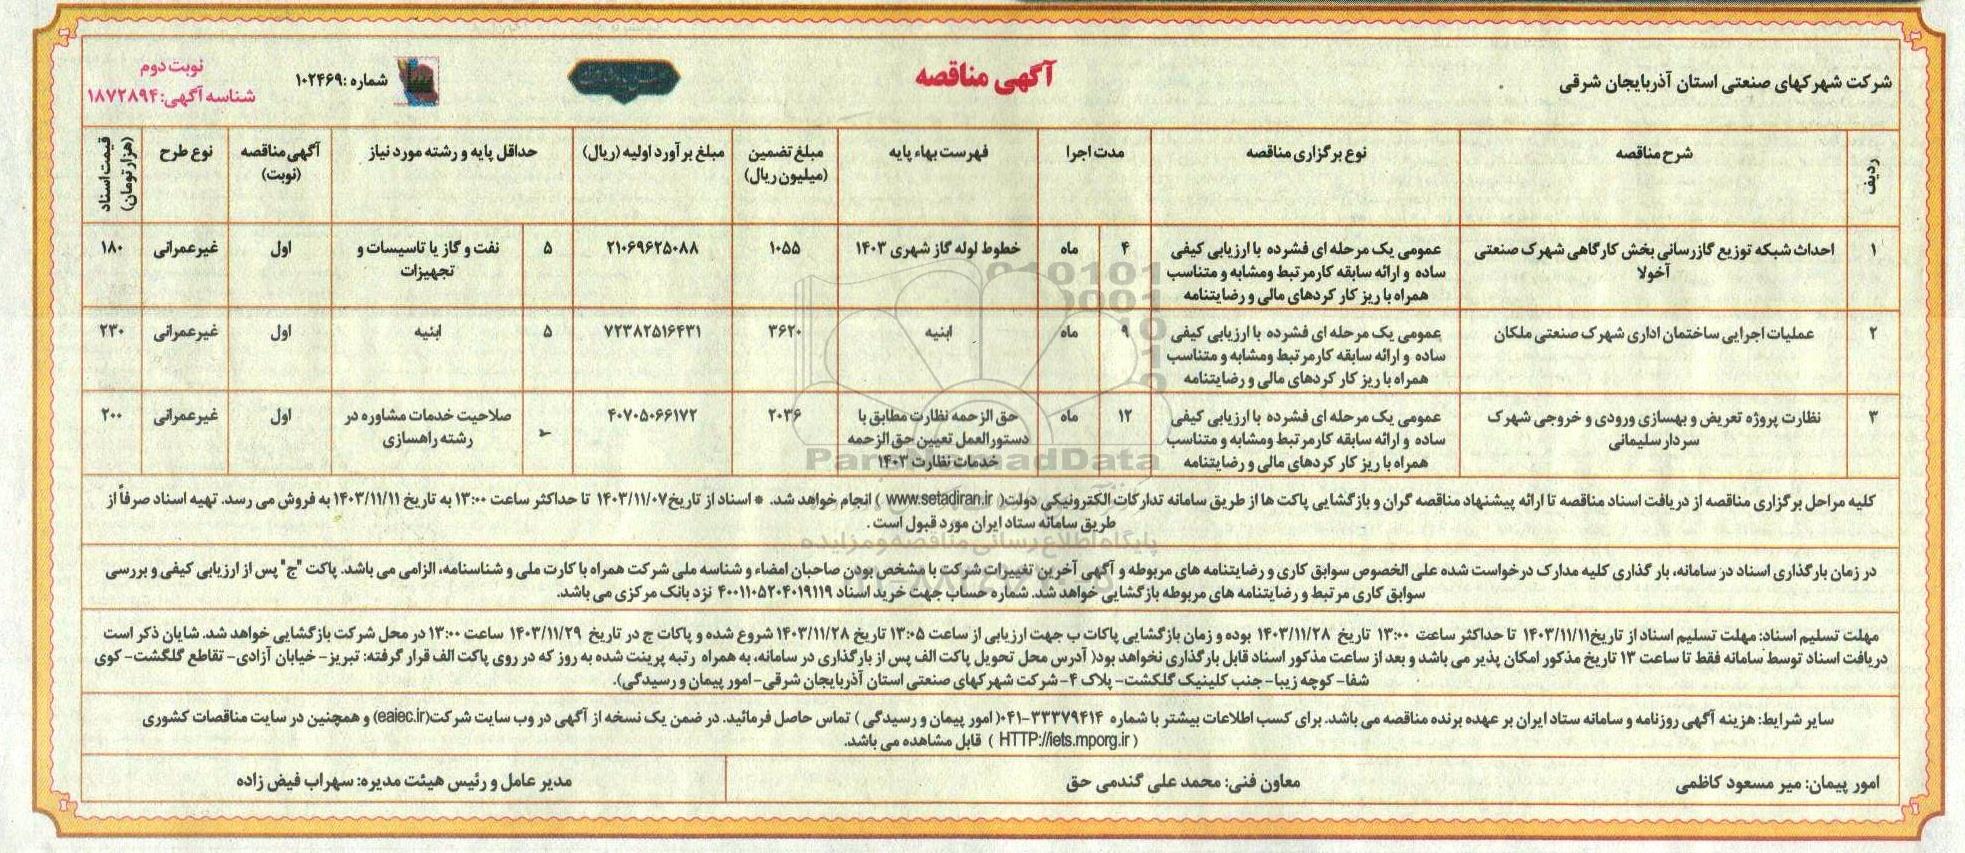 شرکت شهرکهای صنعتی استان آذربایجان شرقی
آگهی مناقصه
شماره :۱۰۲۴۶۹
نوبت دوم
شناسه آگهی: ۱۸۷۲۸۹۴
ردیف
شرح مناقصه
نوع برگزاری مناقصه
مدت اجرا
فهرست بهاء پایه
مبلغ تضمین
(میلیون ریال)
مبلغ برآورد اولیه (ریال)
حداقل پایه و رشته مورد نیاز
آگهی مناقصه
(نوبت)
نوع طرح
قیمت اسناد
(هزار تومان)
۱
احداث شبکه توزیع گازرسانی بخش کارگاهی شهرک صنعتی
آخولا
عمومی یک مرحله ای فشرده با ارزیابی کیفی
ساده و ارائه سابقه کارمرتبط ومشابه و متناسب
همراه با ریز کار کردهای مالی و رضایتنامه
۴
ماه
خطوط لوله گاز شهری ۱۴۰۳
۱۰۵۵
۲۱۰۶۹۶۲۵۰۸۸
۵
نفت و گاز یا تاسیسات و
تجهیزات
اول
غیرعمرانی
۱۸۰
۲
عملیات اجرایی ساختمان اداری شهرک صنعتی ملکان
عمومی یک مرحله ای فشرده با ارزیابی کیفی
ساده و ارائه سابقه کارمرتبط ومشابه و متناسب
همراه با ریز کار کردهای مالی و رضایتنامه
۹
ماه
ابنیه
۳۶۲۰
۷۲۳۸۲۵۱۶۴۳۱
۵
ابنیه
اول
غیرعمرانی
۲۳۰
۳
نظارت پروژه تعریض و بهسازی ورودی و خروجی شهرک
سردار سلیمانی
عمومی یک مرحله ای فشرده با ارزیابی کیفی
ساده و ارائه سابقه کارمرتبط ومشابه و متناسب
همراه با ریز کار کردهای مالی و رضایتنامه
۱۲
ماه
حق الزحمه نظارت مطابق با
دستورالعمل تعیین حق الزحمه
خدمات نظارت ۱۴۰۳
۲۰۳۶
۴۰۷۰۵۰۶۶۱۷۲
-
صلاحیت خدمات مشاوره در
رشته راهسازی
اول
غیرعمرانی
۲۰۰
کلیه مراحل برگزاری مناقصه از دریافت اسناد مناقصه تا ارائه پیشنهاد مناقصه گران و بازگشایی پاکت ها از طریق سامانه تدارکات الکترونیکی دولت( www.setadiran.ir ) انجام خواهد شد. * اسناد از تاریخ۱۴۰۳/۱۱/۰۷ تا حداکثر ساعت ۱۳:۰۰ به تاریخ ۱۴۰۳/۱۱/۱۱ به فروش می رسد. تهیه اسناد صرفاً از
طریق سامانه ستاد ایران مورد قبول است .
در زمان بارگذاری اسناد در سامانه، بار گذاری کلیه مدارک درخواست شده علی الخصوص سوابق کاری و رضایتنامه های مربوطه و آگهی آخرین تغییرات شرکت با مشخص بودن صاحبان امضاء و شناسه ملی شرکت همراه با کارت ملی و شناسنامه، الزامی می باشد. پاکت "ج" پس از ارزیابی کیفی و بررسی
سوابق کاری مرتبط و رضایتنامه های مربوطه بازگشایی خواهد شد. شماره حساب جهت خرید اسناد ۴۰۰۱۱۰۵۲۰۴۰۱۹۱۱۹ نزد بانک مرکزی می باشد.
مهلت تسلیم اسناد: مهلت تسلیم اسناد از تاریخ۱۴۰۳/۱۱/۱۱ تا حداکثر ساعت ۱۳:۰۰ تاریخ ۱۴۰۳/۱۱/۲۸ بوده و زمان بازگشایی پاکات ب جهت ارزیابی از ساعت ۱۳:۰۵ تاریخ ۱۴۰۳/۱۱/۲۸ شروع شده و پاکات ج در تاریخ ۱۴۰۳/۱۱/۲۹ ساعت ۱۳:۰۰ در محل شرکت بازگشایی خواهد شد. شایان ذکر است
دریافت اسناد توسط سامانه فقط تا ساعت ۱۳ تاریخ مذکور امکان پذیر می باشد و بعد از ساعت مذکور اسناد قابل بارگذاری نخواهد بود( آدرس محل تحویل پاکت الف پس از بارگذاری در سامانه، به همراه رتبه پرینت شده به روز که در روی پاکت الف قرار گرفته: تبریز- خیابان آزادی- تقاطع گلگشت- کوی
شفا- کوچه زیبا- جنب کلینیک گلگشت- پلاک ۴- شرکت شهرکهای صنعتی استان آذربایجان شرقی- امور پیمان و رسیدگی).
سایر شرایط: هزینه آگهی روزنامه و سامانه ستاد ایران بر عهده برنده مناقصه می باشد. برای کسب اطلاعات بیشتر با شماره ۳۳۳۷۹۴۱۴-۰۴۱( امور پیمان و رسیدگی ) تماس حاصل فرمائید. در ضمن یک نسخه از آگهی در وب سایت شرکت(eaiec.ir) و همچنین در سایت مناقصات کشوری
( HTTP://iets.mporg.ir ) قابل مشاهده می باشد.
امور پیمان: میر مسعود کاظمی
معاون فنی: محمد علی گندمی حق
مدیر عامل و رئیس هیئت مدیره: سهراب فیض زاده
ParsNamadData
پایگاه اطلاع رسانی مناقصه و مزایده